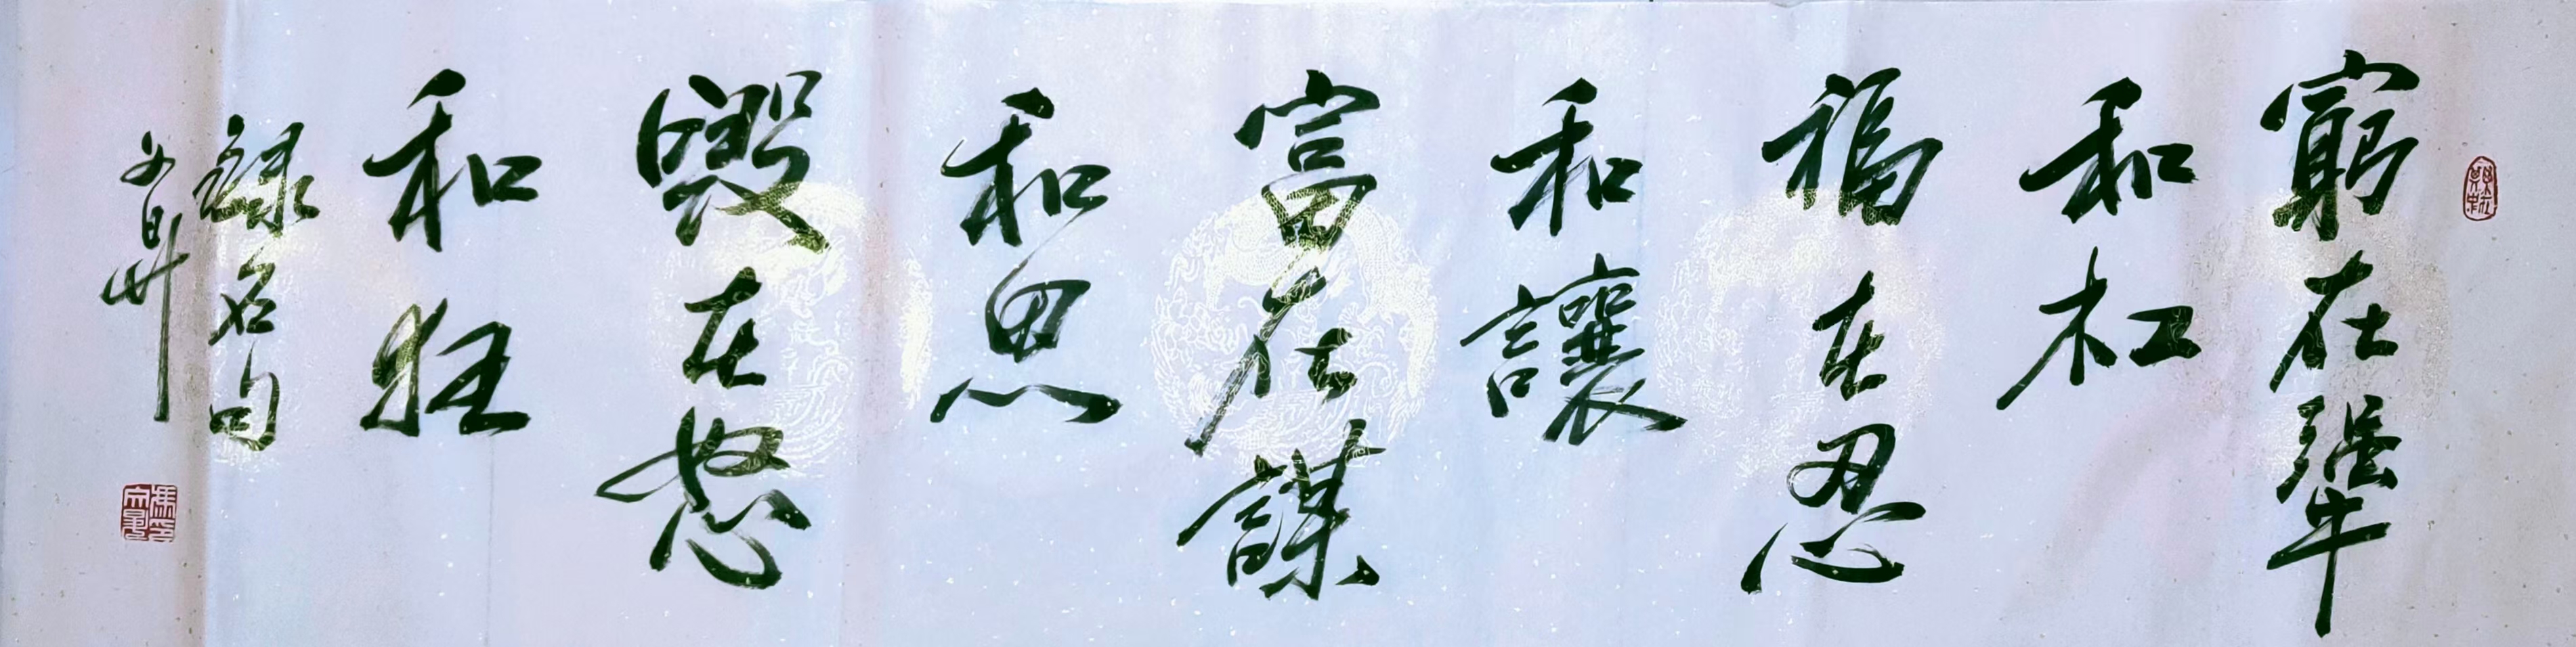 窮在犟
和杠
福在忍
和讓
富在謀
和思
毀在怒
和狂
録名句